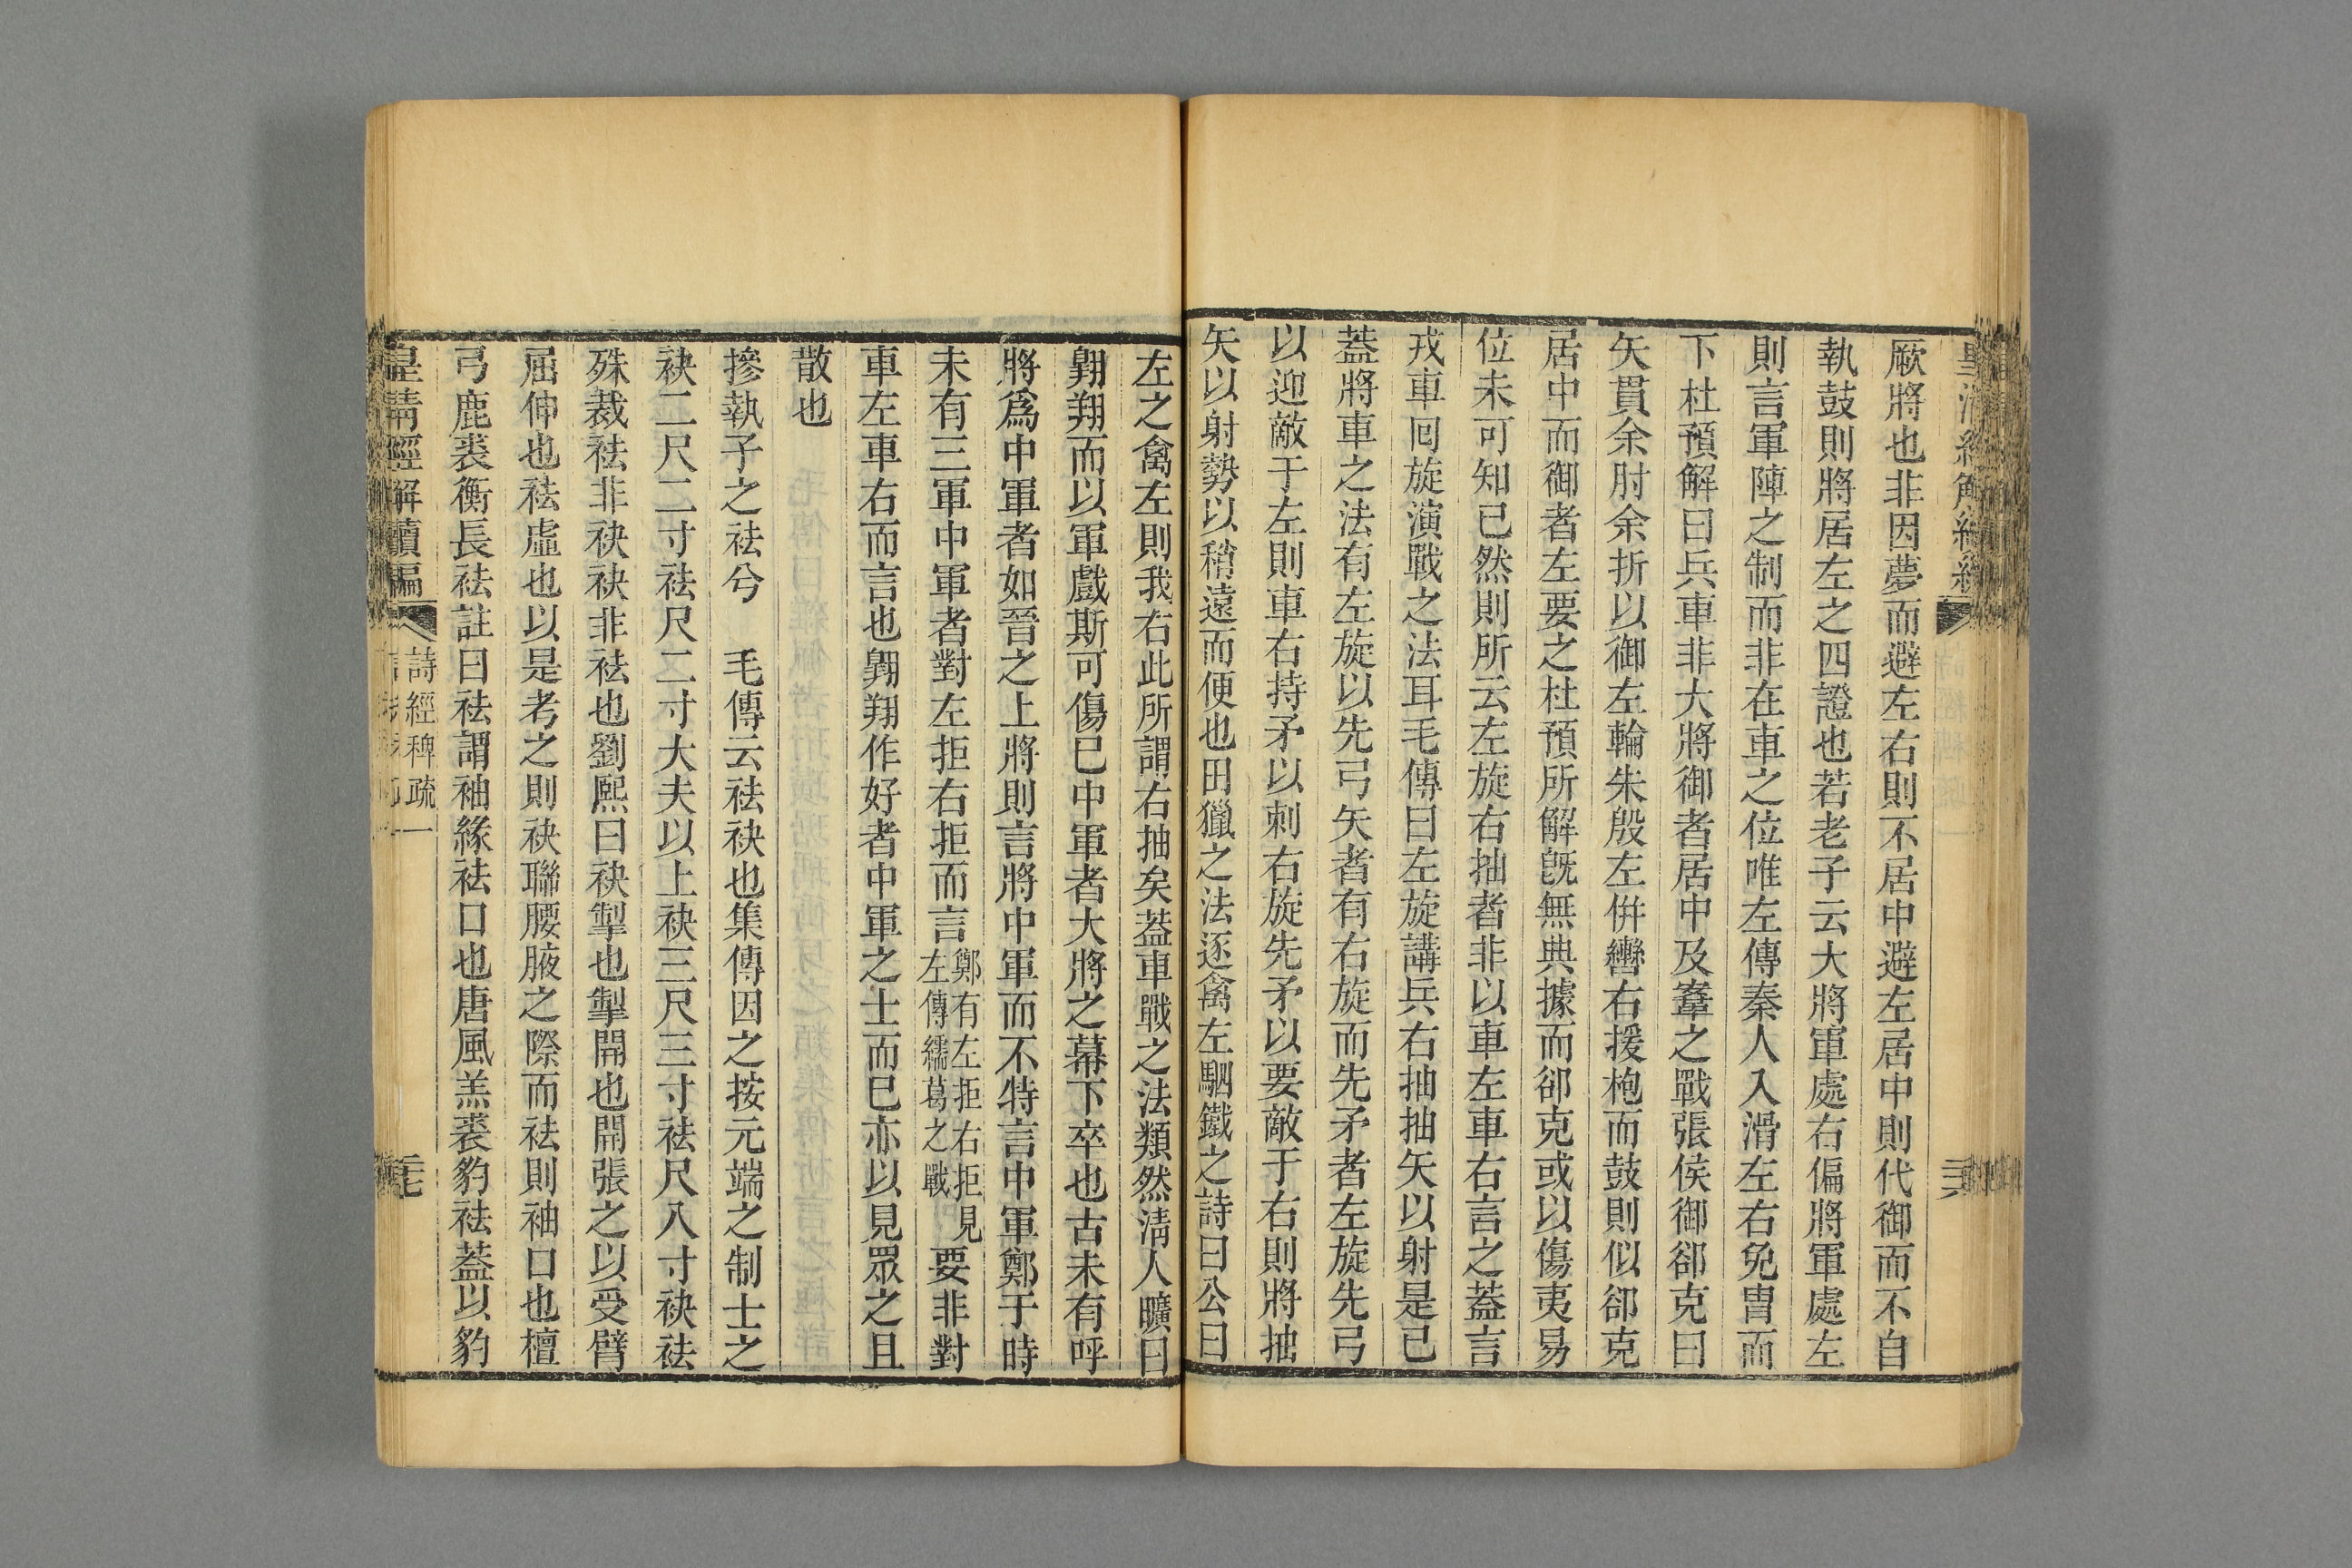 厥將也非因夢而避左右則不居中避左居中則代御而不自
執鼓則將居左之四證也若老子云大將軍處右偏將軍處左
則言軍陣之制而非在車之位唯左傳秦人入滑左右免冑而
下杜預解曰兵車非大將御者居中及鞌之戰張侯御郤克曰
矢貫余肘余折以御左輪朱殷左倂轡右援枹而鼓則似郤克
居中而御者左要之杜預所解旣無典據而郤克或以傷夷易
位未可知已然則所云左旋右抽者非以車左車右言之蓋言
戎車回旋演戰之法耳毛傳曰左旋講兵右抽抽矢以射是已
蓋將車之法有左旋以先弓矢者有右旋而先矛者左旋先弓
以迎敵于左則車右持矛以刺右旋先矛以要敵于右則將抽
矢以射勢以稍遠而便也田獵之法逐禽左駟鐵之詩曰公曰
左之禽左則我右此所謂右抽矣蓋車戰之法類然淸人曠日
翺翔而以軍戲斯可傷已中軍者大將之幕下卒也古未有呼
將爲中軍者如晉之上將則言將中軍而不特言中軍鄭于時
未有三軍中軍者對左拒右拒而言鄭有左拒右拒見左傳繻葛之戰要非對
車左車右而言也翺翔作好者中軍之士而已亦以見眾之且
散也
摻執子之祛兮　毛傳云祛袂也集傳因之按元端之制士之
袂二尺二寸祛尺二寸大夫以上袂三尺三寸祛尺八寸袂祛
殊裁祛非袂袂非祛也劉熙曰袂掣也掣開也開張之以受臂
屈伸也祛虛也以是考之則袂聯腰腋之際而祛則袖口也檀
弓鹿裘衡長祛註曰祛謂袖緣祛口也唐風羔裘豹祛蓋以豹
皇清經解續編
詩經稗疏一